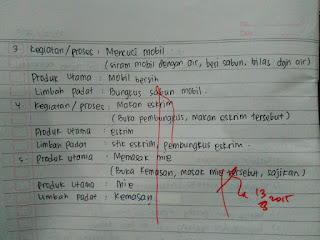 3 Kegiatan/proses : Mencuci mobil
(siram mobil dengan air, beri sabun, bilas dgn air)
Produk Utama : Mobil bersih
Limbah Padat : Bungkus sabun mobil.
4 Kegiatan/proses : Makan eskrim
(Buka pembungkus, makan eskrim tersebut)
Produk utama : Eskrim
Limbah padat : stik eskrim, pembungkus eskrim.
5. Produk utama : Memasak mie
(Buka kemasan, masak mie tersebut, sajikan)
Produk utama : Mie
Limbah padat : Kemasan
13
8 2015